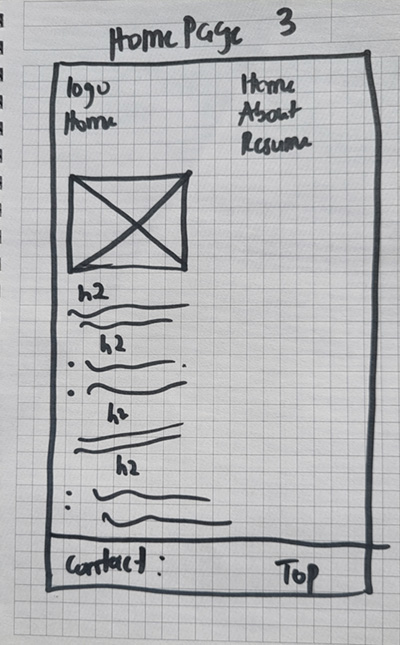 Home Page 3
logo
Home
Home
About
Resume
h2
h2
h2
h2
Contact:
Top